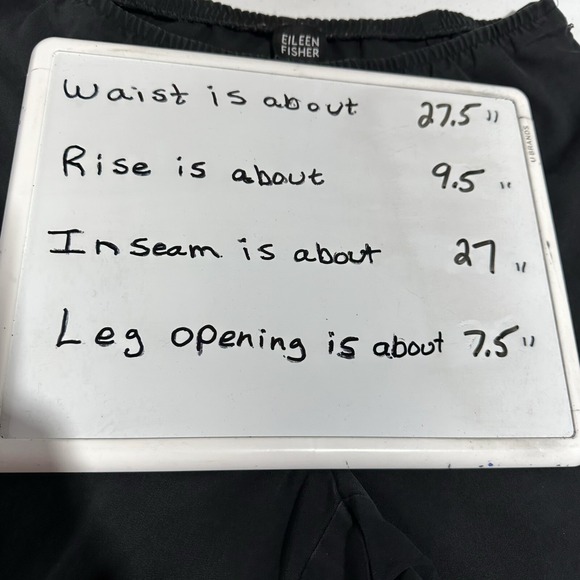 EILEEN
FISHER
Waist is about 27.5"
Rise is about 9.5"
Inseam is about 27"
Leg opening is about 7.5"
U BRANDS